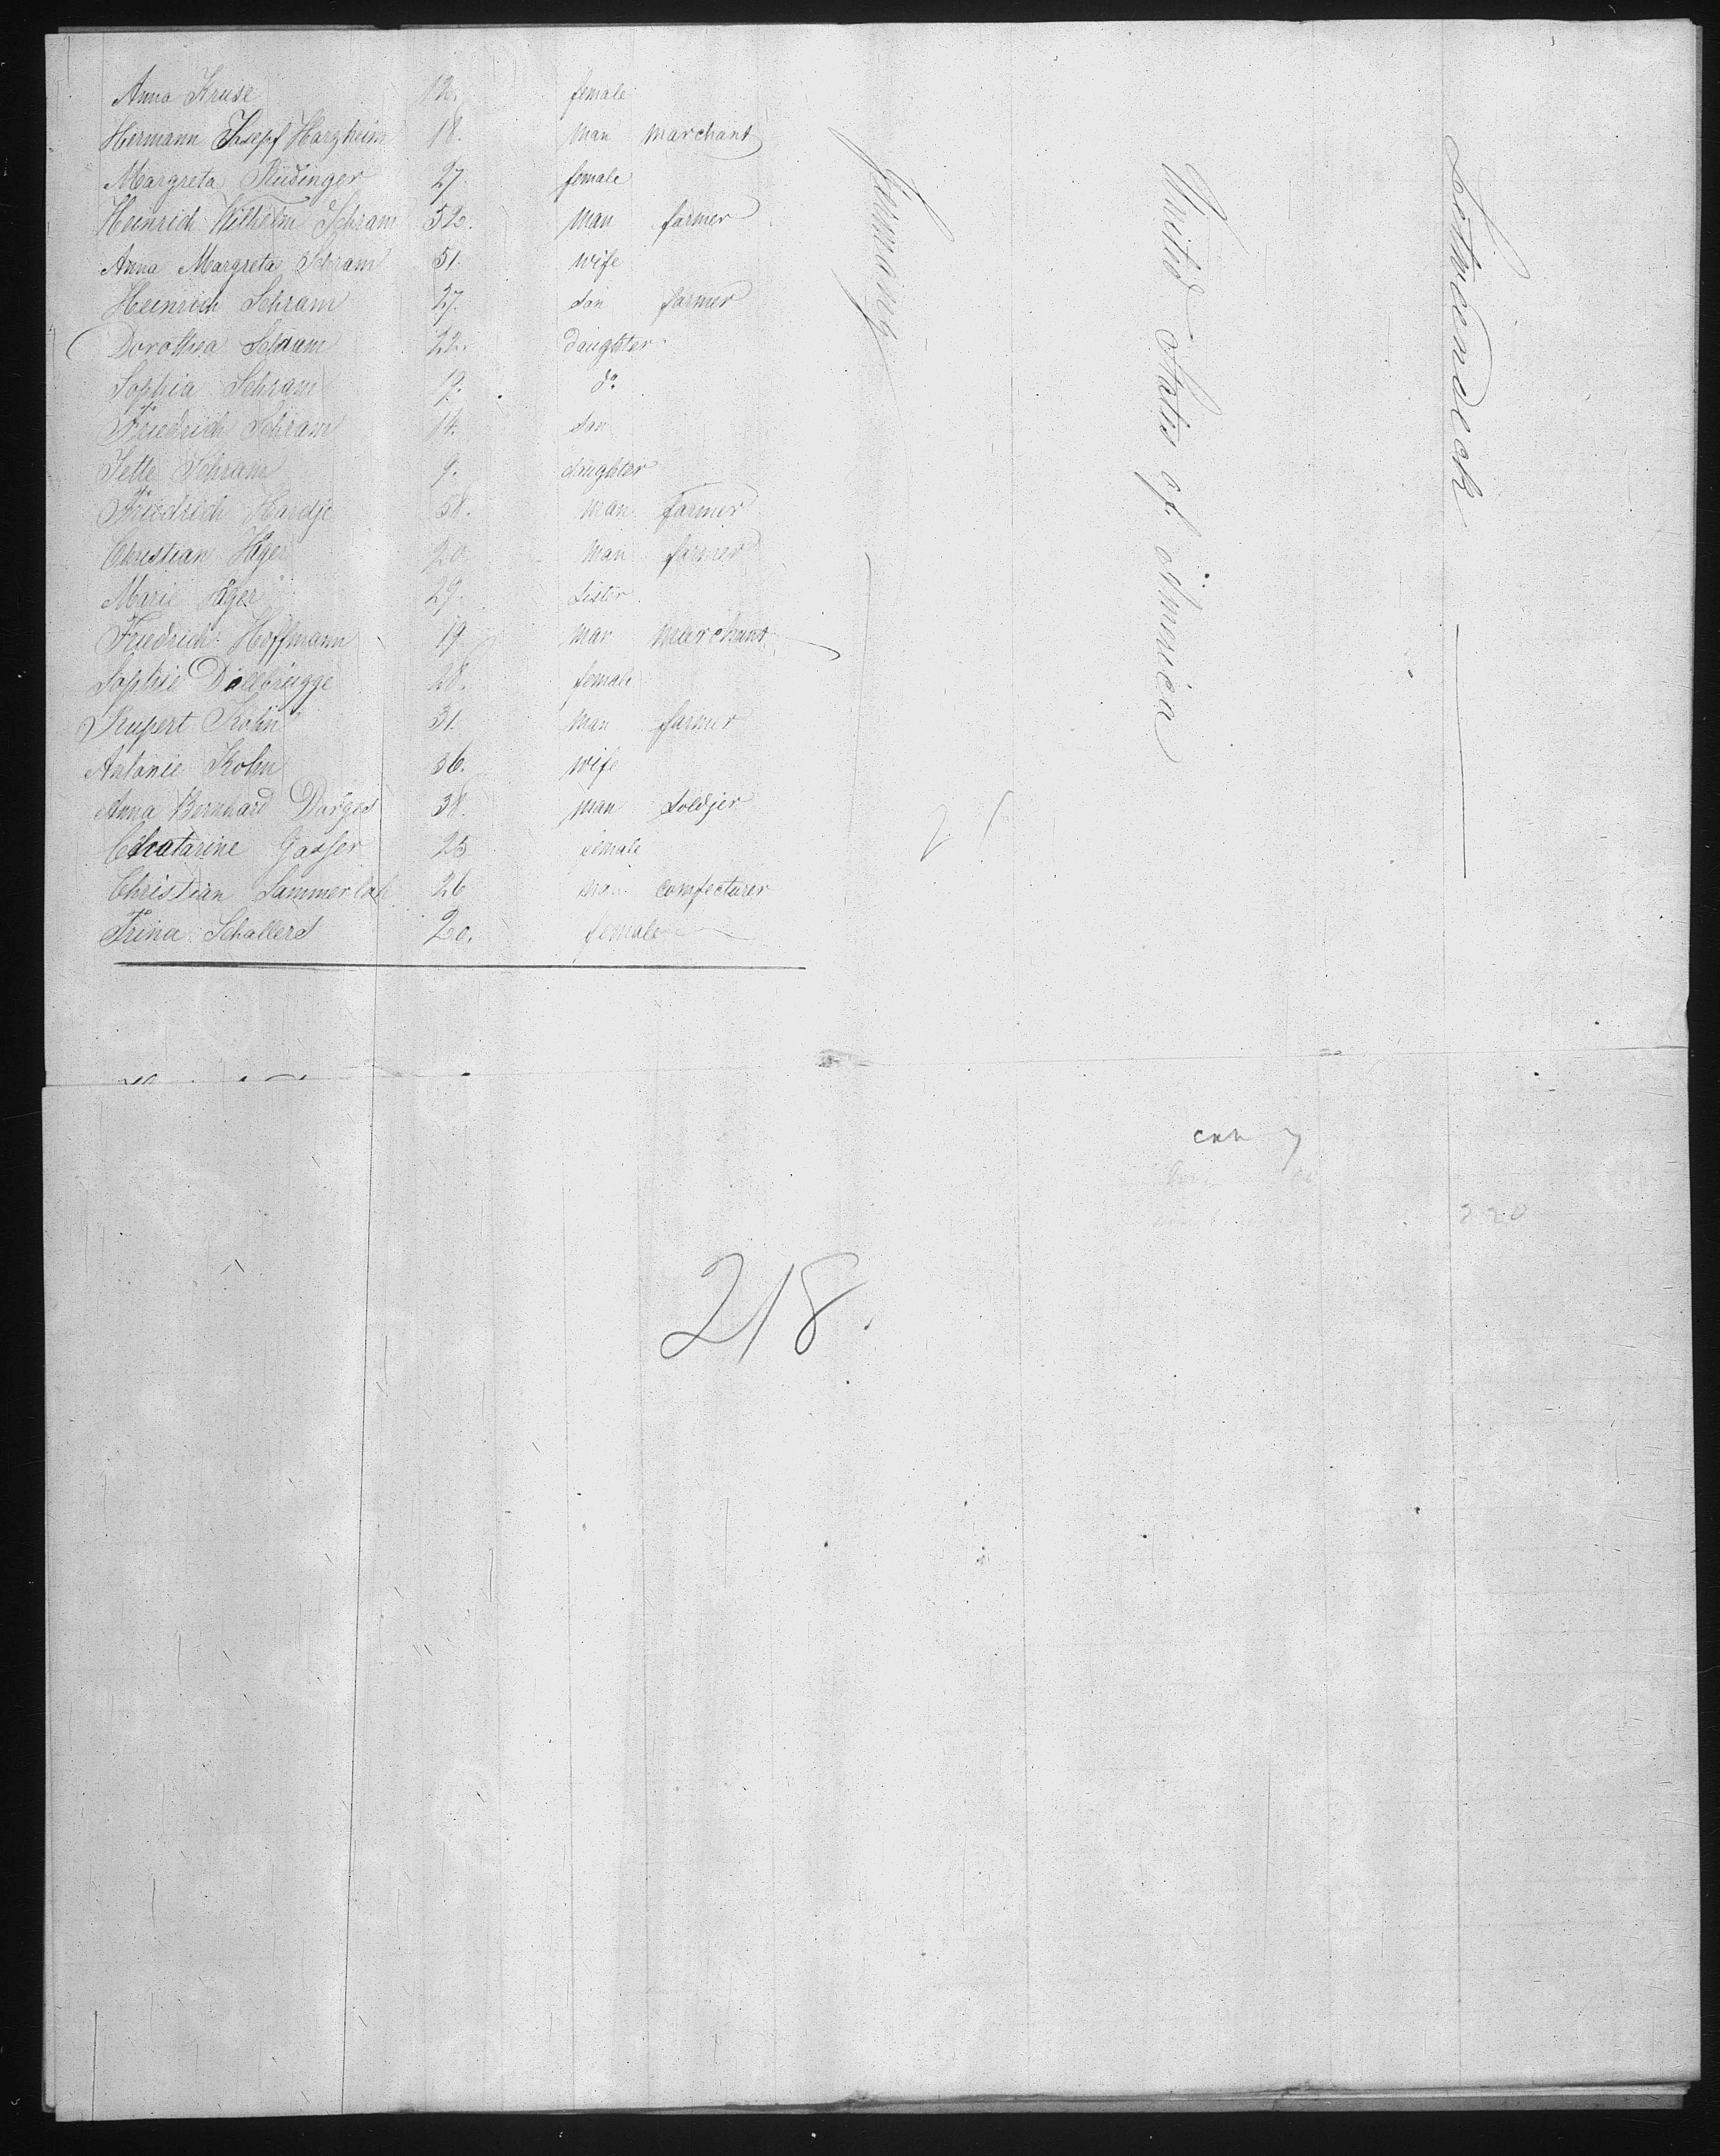 Anna Kruse 12. female
Hermann Josepf Harzheim 18. man marchant
Margreta Rüdinger 27. female
Heinrich Wilhelm Schram 52. man farmer
Anna Margreta Schram 51. wife
Heinrich Schram 27. son farmer
Dorothea Schram 22. daughter
Sophia Schram 19. do
Friedrich Schram 14. son
Jette Schram 9. daughter
Friedrich Hardje 58. man farmer
Christian Häger 20 man farmer
Marie Häger 29. sister
Friedrich Hoffmann 19 man marchant
Sophie Dallbrügge 28. female
Rupert Kohn 31. man farmer
Antonie Kohn 36. wife
Anna Bernhard Darges 38. man soldjer
Chatarine Gasser 25 female
Christian Sammerlah 26 comfecturer
Trina Schallers 20. female
Germany
United States of America
Zwischendeck
21
218.
220